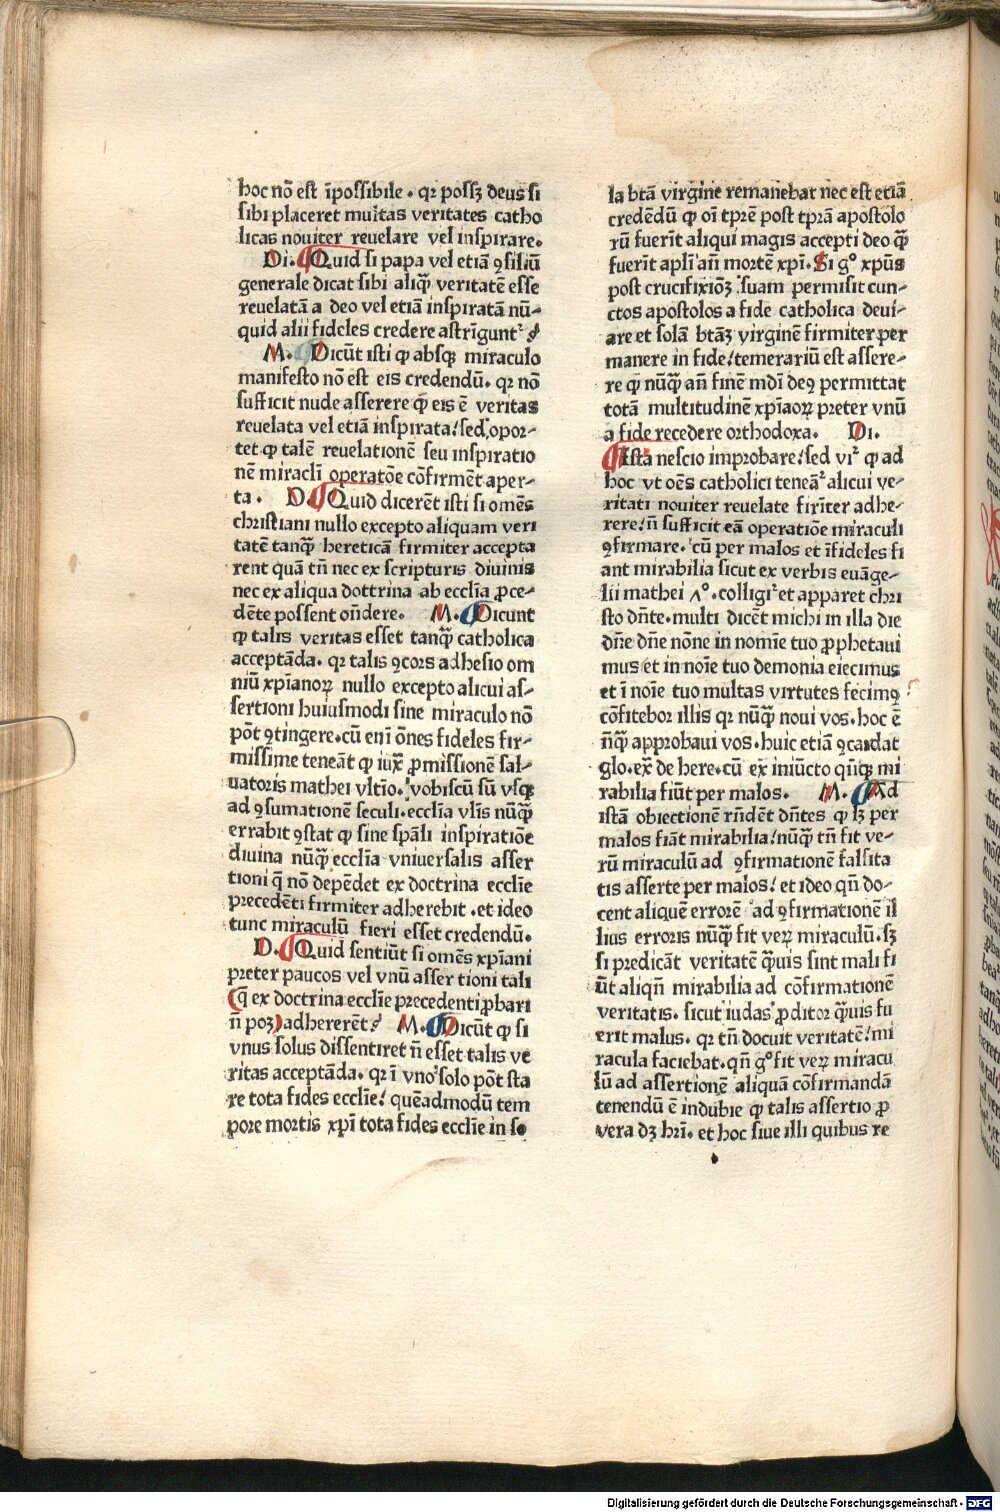 hoc nō est īpossibile . qꝛ possꝫ deus si
sibi placeret multas veritates catho
licas nouiter reuelare vel inspirare.
Di. Quid si papa vel etiā ꝯsiliū
generale dicat sibi aliqͣ veritatē esse
reuelatā a deo vel etiā inspiratā nū-
quid alii fideles credere astrīgunt᷑ ?
M. Dicūt isti ꝙ absqꝫ miraculo
manifesto nō est eis credendū. qꝛ nō
sufficit nude asserere ꝙ eis ē veritas
reuelata vel etiā inspirata/sed opor-
tet ꝙ talē reuelationē seu inspiratio
nē miracl̄i operatōe cōfirmēt aper-
ta . D. Quid dicerēt isti si omēs
christiani nullo excepto aliquam veri
tatē tanqͣ hereticā firmiter accepta
rent quā tn̄ nec ex scripturis diuinis
nec ex aliqua dottrina ab eccl̄ia ꝓce-
dēte possent on̄dere. M. Dicunt
ꝙ talis veritas esset tanqͣ catholica
acceptāda. qꝛ talis ꝯcors adhesio om
niū xp̄ianoꝝ nullo excepto alicui as-
sertioni huiusmodi sine miraculo nō
pōt ꝯtingere. cū enī ōnes fideles fir-
missime teneāt ꝙ iuxͣ ꝓmissionē sal-
uatoris mathei vltīo. vobiscū sū vsqꝫ
ad ꝯsumationē seculi. eccl̄ia vl̄is nūqͣ
errabit ꝯstat ꝙ sine sp̄ali inspiratiōe
diuina nūqͣ eccl̄ia vniuersalis asser
tioni q̄ nō depēdet ex doctrina eccl̄ie
precedēti firmiter adherebit . et ideo
tunc miraculū fieri esset credendū.
D. Quid sentiūt si omēs xp̄iani
preter paucos vel vnū asser tioni tali
(q̄ ex doctrina eccl̄ie precedenti ꝓbari
n̄ poꝫ) adhererēt? M. Dicūt ꝙ si
vnus solus dissentiret n̄ esset talis ve
ritas acceptāda. qꝛ ī vno solo pōt sta
re tota fides eccl̄ie/ quēadmodū tem
pore mortis xp̄i tota fides eccl̄ie in so
la btā virgine remanebat nec est etiā
credēdū ꝙ oī tp̄re post tp̄ra apostolo
rū fuerīt aliqui magis accepti deo qͣ
fuerīt apl̄i an̄ mortē xp̄i. Si gͦ xp̄us
post crucifixiōꝫ suam permisit cun-
ctos apostolos a fide catholica deui-
are et solā btāꝫ virginē firmiter per
manere in fide/temerariū est assere-
re ꝙ nūqͣ an̄ finē mdī deꝯ permittat
totā multitudinē xp̄iaoꝝ preter vnū
a fide recedere orthodoxa. Di.
Istā nescio improbare/sed vi᷑ ꝙ ad
hoc vt oēs catholici teneā᷑ alicui ve-
ritati nouiter reuelate firīter adhe-
rere/n̄ sufficit eā operatiōe miraculi
ꝯfirmare. cū per malos et īfideles fi
ant mirabilia sicut ex verbis euāge-
lii mathei ʌͦ. colligi᷑ et apparet chri
sto dn̄te. multi dicēt michi in illa die
dn̄e dn̄e nōne in nomīe tuo ꝓphetaui
mus/et in noīe tuo demonia eiecimus
et ī noīe tuo multas virtutes fecimꝯ
cōfitebor illis qꝛ nūqͣ noui vos. hoc ē
n̄qͣ approbaui vos. huic etiā ꝯcordat
glo. exͣ de here. cū ex iniūcto qn̄qꝫ mi
rabilia fiūt per malos. M. Ad
istā obiectionē rn̄dēt dn̄tes ꝙ lꝫ per
malos fiāt mirabilia/nūqͣ tn̄ fit ve-
rū miraculū ad ꝯfirmationē falsita
tis asserte per malos/ et ideo qn̄ do-
cent aliquē errorē ad ꝯfirmationē il
lius erroris nūqͣ fit veꝝ miraculū. sꝫ
si predicāt veritatē qͣuis sint mali fi
ūt aliqn̄ mirabilia ad cōfirmationē
veritatis. sicut iudas ꝓditor qͣuis fu
erit malus. qꝛ tn̄ docuit veritatē/mi
racula faciebat. qn̄ gͦ fit veꝝ miracu
lū ad assertionē aliquā cōfirmandā
tenendū ē indubie ꝙ talis assertio ꝓ
vera dꝫ hr̄i. et hoc siue illi quibus re
Digitalisierung gefördert durch die Deutsche Forschungsgemeinschaft - DFG